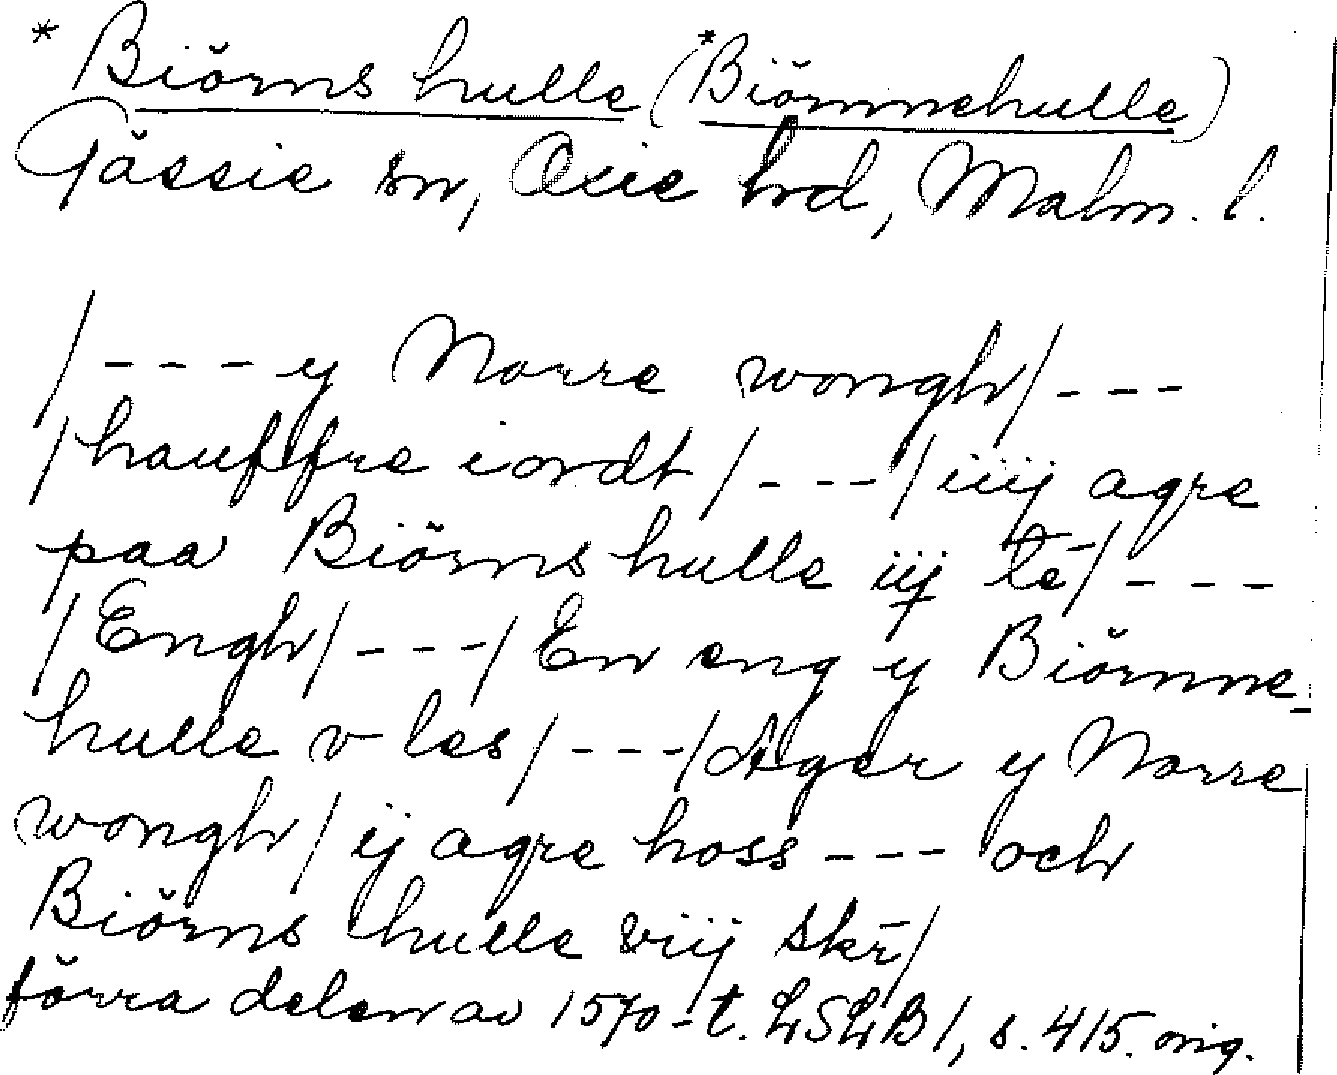 * Biörns hulle (*Biörnnehulle)
Gässie sn, Oxie hrd, Malm. l.
/---y Norre wongh/---
/hauffre iordt/---/iiij agre
paa Biörns hulle iij te/---
/Engh/---/En eng y Biörnne-
hulle v les/---/Ager y Norre
wongh/ij agre hoss --- och
Biörns hulle viij skr̄/
förra delen av 1570-t. LSLB 1, s. 415. orig.